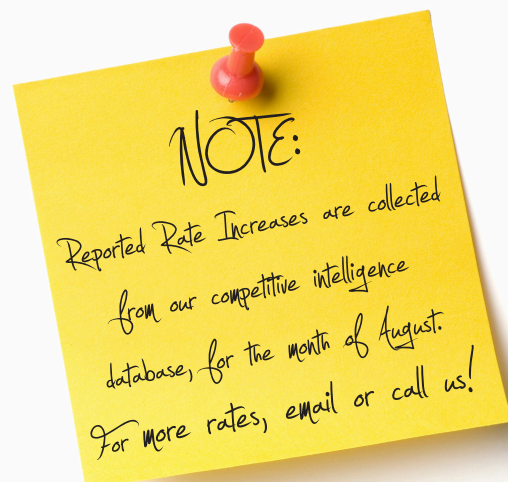 NOTE:
Reported Rate Increases are collected
from our competitive intelligence
database, for the month of August.
For more rates, email or call us!